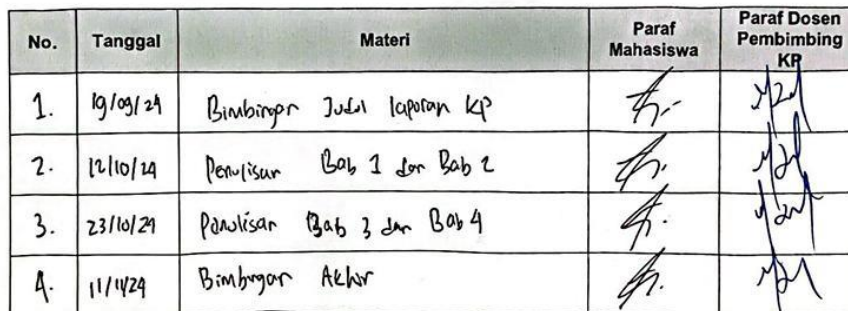 No. Tanggal Materi Paraf Mahasiswa Paraf Dosen Pembimbing KP
1. 19/09/24 Bimbingan Judul laporan KP
2. 12/10/24 Penulisan Bab 1 dan Bab 2
3. 23/10/24 Penulisan Bab 3 dan Bab 4
4. 11/11/24 Bimbingan Akhir